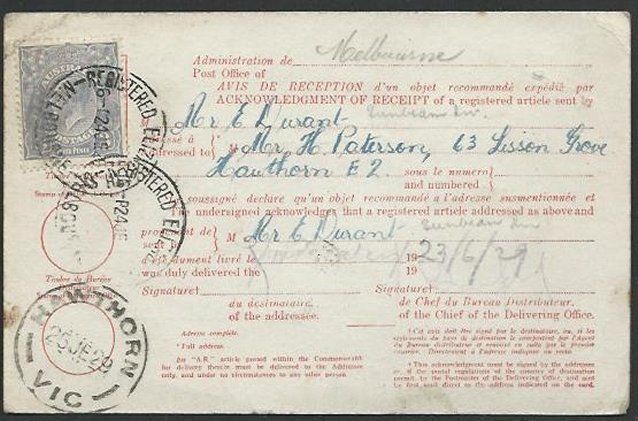 Administration de Melbourne
Post Office of
AVIS DE RECEPTION d'un objet recommandé expédié par
ACKNOWLEDGMENT OF RECEIPT of a registered article sent by
Mr E Durant
addressé à
addressed to } M Mr. H. Paterson, 63 Lisson Grove
Hawthorn E 2. sous le numero
and numbered
soussigné déclare qu'un objet recommandé a l'addresse susmentionnée et
The undersigned acknowledges that a registered article addressed as above and
provenant de
sent by } M Mr E Durant
a été dument livré le 19 23/6/29
was duly delivered the 19
Signature† Signature†
du destinataire. de Chef du Bureau Distributeur.
of the addressee. of the Chief of the Delivering Office.
Adresse complète.
* Full address.
An "A.R." article posted within the Commonwealth
for delivery therein must be delivered to the Addressee
only, and under no circumstances to any other person.
† Cet avis doit être signé par le destinataire, ou, si les
règlements du pays de destination le comportent par l'Agent
du Bureau distributeur, et renvoyé par le premier
courrier directement à l'adresse indiquée au recto.
† This acknowledgment must be signed by the addressee
or, if the postal regulations of the country of destination
provide, by the Postmaster of the Delivering Office, and sent
by first mail direct to the address indicated on the card.
POSTAGE
REGISTERED
MELBOURNE
REGISTERED
Timbre du Bureau
HAWTHORN
VIC